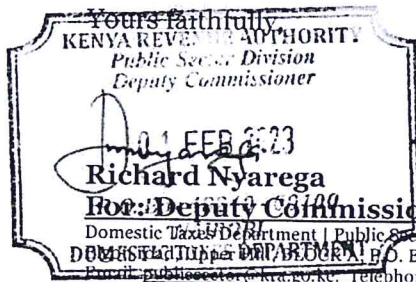 Yours faithfully
KENYA REVENUE AUTHORITY
Public Sector Division
Deputy Commissioner
01 FEB 2023
Richard Nyarega
For: Deputy Commissio
Domestic Taxes Department | Public Sec
DOMESTIC TAXES DEPARTMENT
Upper Hill, BLOCK A, P.O. B
Email: publicsector@kra.go.ke, Telepho